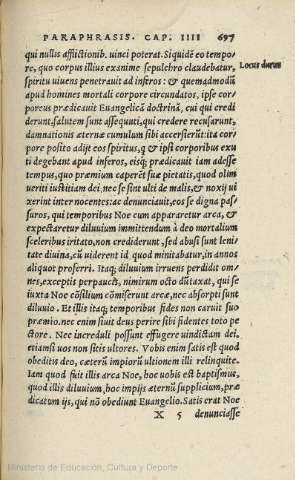 PARAPHRASIS. CAP. IIII 697
qui nullas afflictionib. uinci poterat. Siquidẽ eo tempo
re, quo corpus illius exanime sepulchro claudebatur,
Locus durus
spiritu uiuens penetrauit ad inferos: & quemadmodũ
apud homines mortali corpore circundatos, ipse cor/
poreus prædicauit Euangelicã doctrinã, cui qui credi
derunt, salutem sunt assequuti, qui credere recusarunt,
damnationis æternæ cumulum sibi accersierũt: ita cor
pore posito adijt eos spiritus, q & ipsi corporibus exu
ti degebant apud inferos, eisq; prædicauit iam adesse
tempus, quo præmium caperẽt suæ pietatis, quod olim
ueriti iustitiam dei, nec se sint ulti de malis, & noxij ui
xerint inter nocentes: ac denunciauit, eos se digna pas/
suros, qui temporibus Noe cum appararetur arca, &
expectaretur diluuium immittendum à deo mortalium
sceleribus iritato, non crediderunt, sed abusi sunt leni/
tate diuina, cũ uiderent id quod minitabatur, in annos
aliquot proferri. Itaq; diluuium irruens perdidit om/
nes, exceptis perpaucis, nimirum octo dũtaxat, qui se
iuxta Noe cõsilium cõmiserunt arcæ, nec absorpti sunt
diluuio. Et illis itaq; temporibus fides non caruit suo
præmio. nec enim siuit deus perire sibi fidentes toto pe
ctore. Nec increduli possunt effugere uindictam dei,
etiamsi uos non sitis ultores. Vobis enim satis est quod
obeditis deo, cæterũ impiorũ ultionem illi relinquite.
Iam quod fuit illis arca Noe, hoc uobis est baptismus,
quod illis diluuium, hoc impijs æternũ supplicium, præ
dicatum ijs, qui nõ obediunt Euangelio. Satis erat Noe
X 5 denunciasse
Ministerio de Educación, Cultura y Deporte